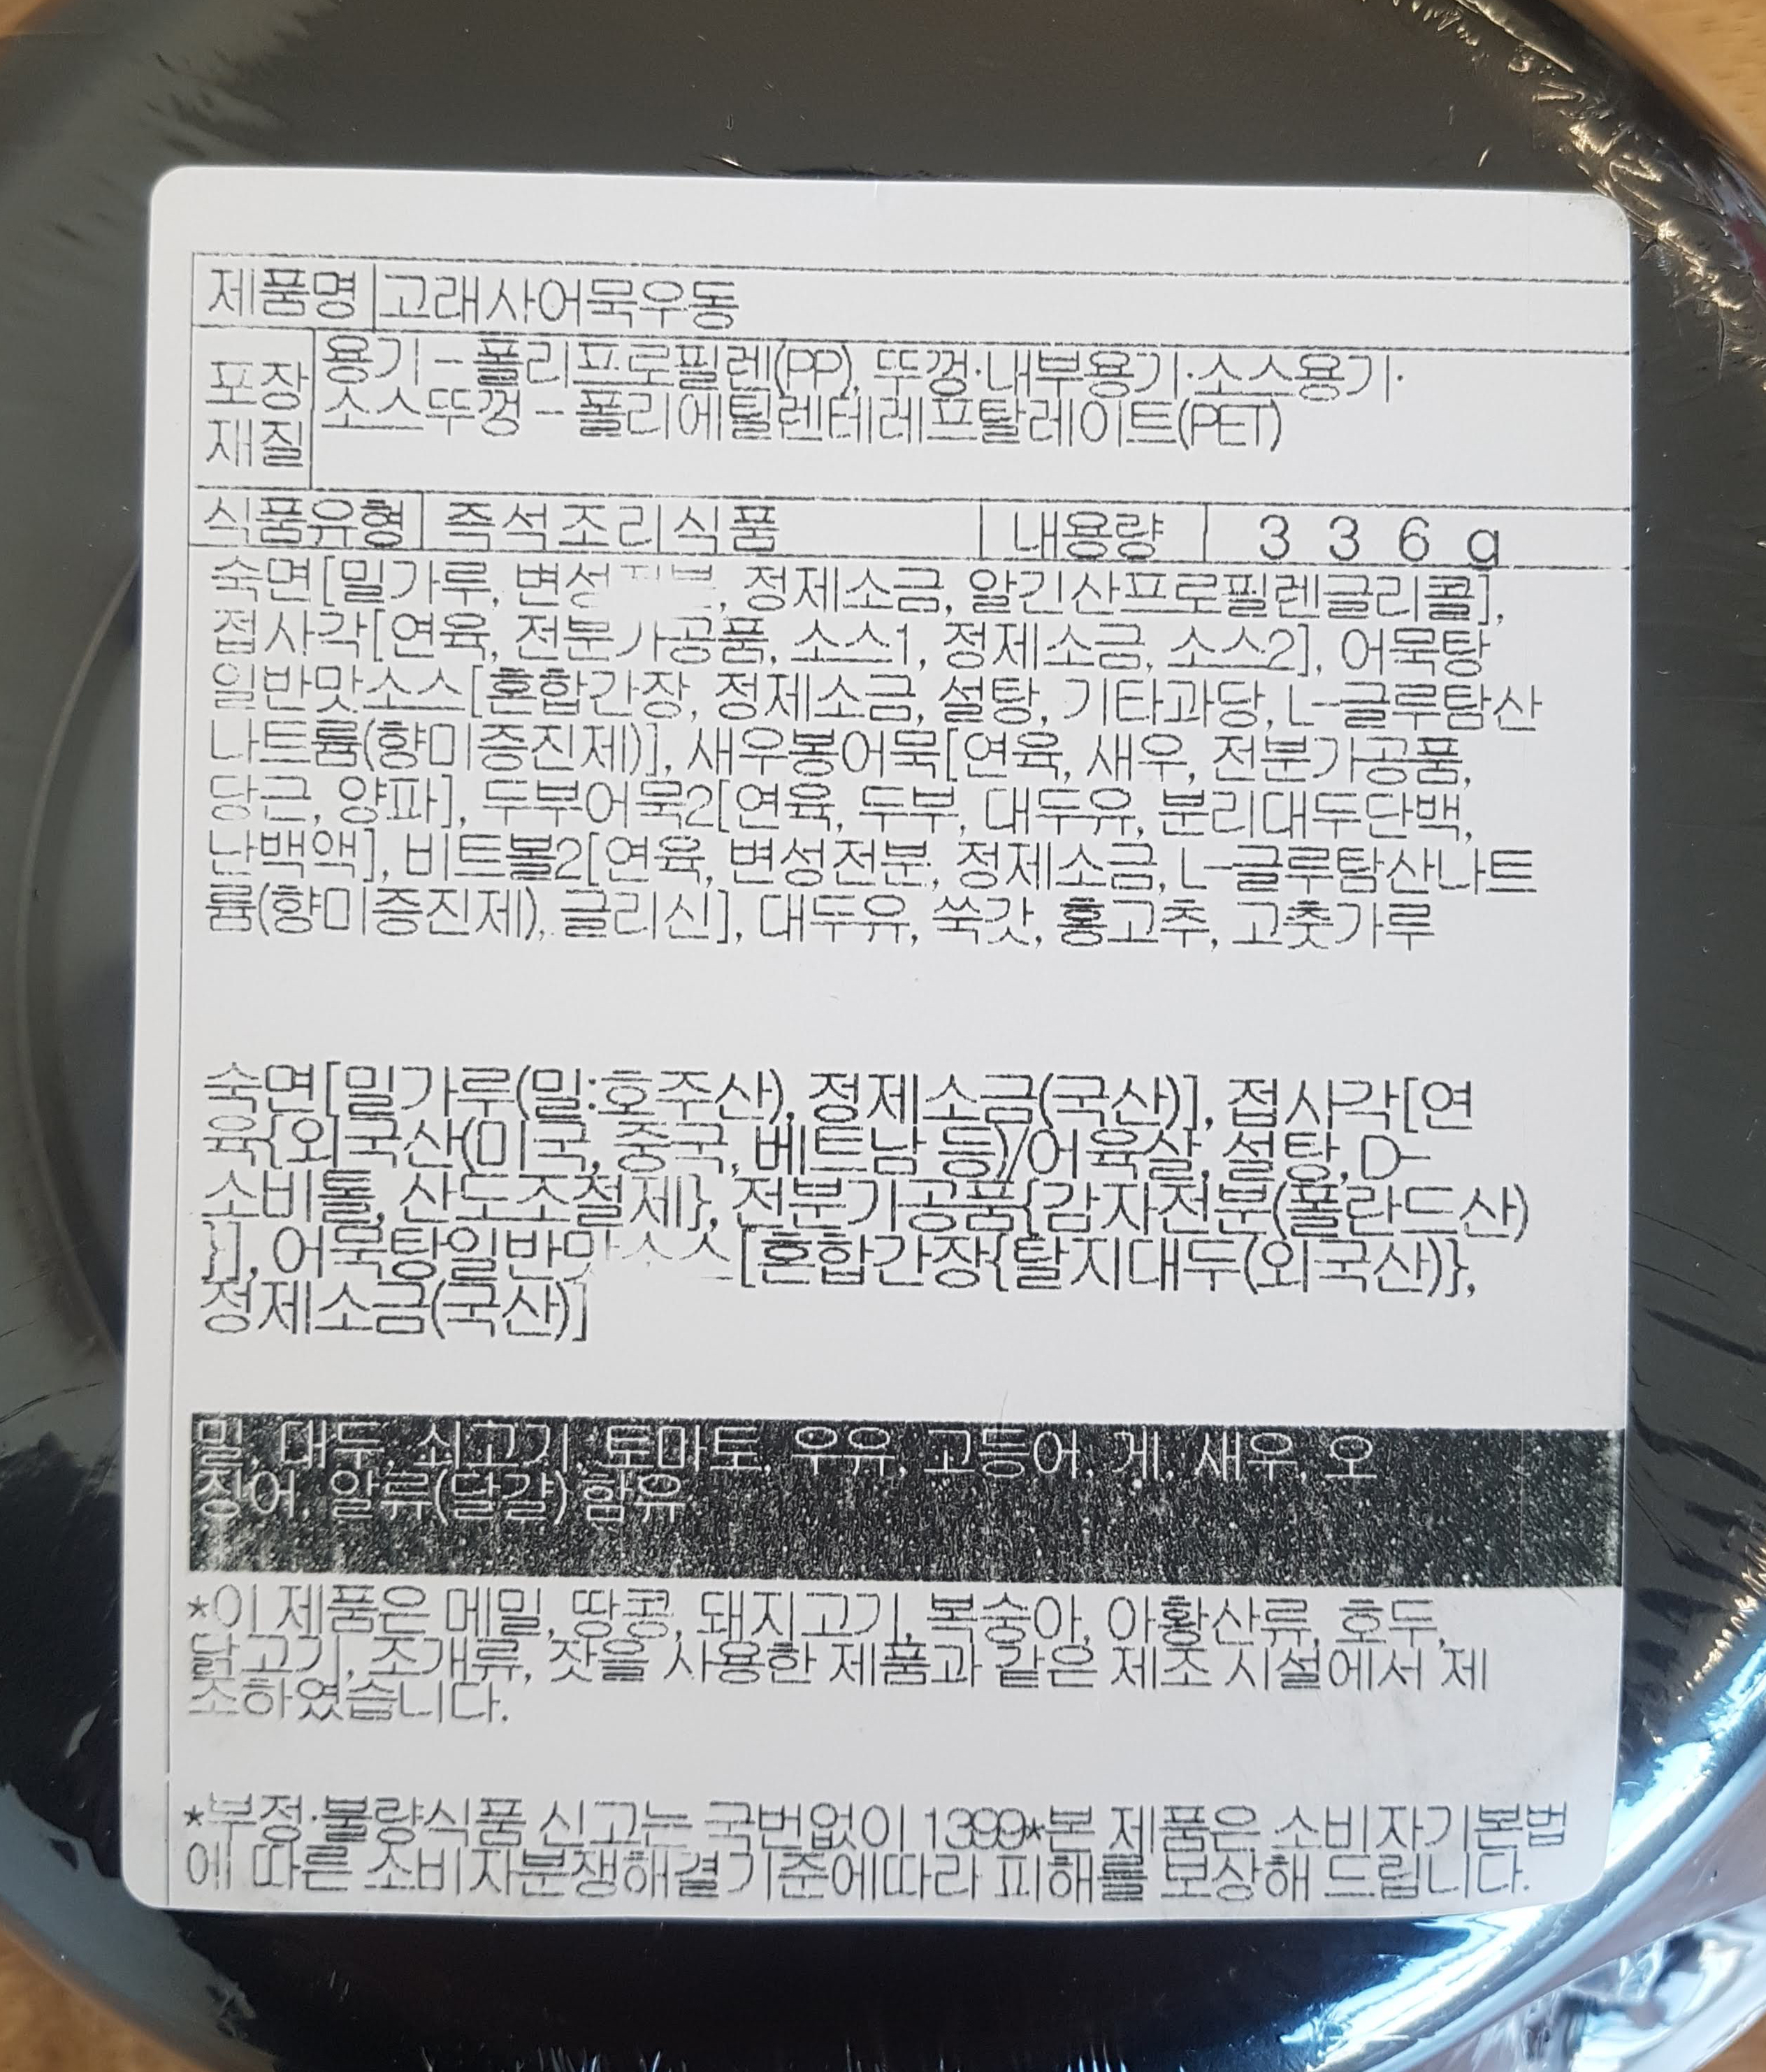 제품명 고래사어묵우동
포장 재질 용기-폴리프로필렌(PP), 뚜껑·내부용기·소스용기·
소스뚜껑-폴리에틸렌테레프탈레이트(PET)
식품유형 즉석조리식품 내용량 336g
숙면[밀가루, 변성전분, 정제소금, 알긴산프로필렌글리콜],
접사각[연육, 전분가공품, 소스1, 정제소금, 소스2], 어묵탕
일반맛소스[혼합간장, 정제소금, 설탕, 기타과당, L-글루탐산
나트륨(향미증진제)], 새우봉어묵[연육, 새우, 전분가공품,
당근, 양파], 두부어묵2[연육, 두부, 대두유, 분리대두단백,
난백액], 비트볼2[연육, 변성전분, 정제소금, L-글루탐산나트
륨(향미증진제), 글리신], 대두유, 쑥갓, 홍고추, 고춧가루
숙면[밀가루(밀:호주산), 정제소금(국산)], 접사각[연
육{외국산(미국, 중국, 베트남 등)/어육살, 설탕, D-
소비톨, 산도조절제}, 전분가공품{감자전분(폴란드산)
}], 어묵탕일반맛소스[혼합간장{탈지대두(외국산)},
정제소금(국산)]
밀, 대두, 쇠고기, 토마토, 우유, 고등어, 게, 새우, 오
징어, 알류(달걀) 함유
*이 제품은 메밀, 땅콩, 돼지고기, 복숭아, 아황산류, 호두,
닭고기, 조개류, 잣을 사용한 제품과 같은 제조 시설에서 제
조하였습니다.
*부정·불량식품 신고는 국번없이 1399*본 제품은 소비자기본법
에 따른 소비자분쟁해결기준에따라 피해를 보상해 드립니다.